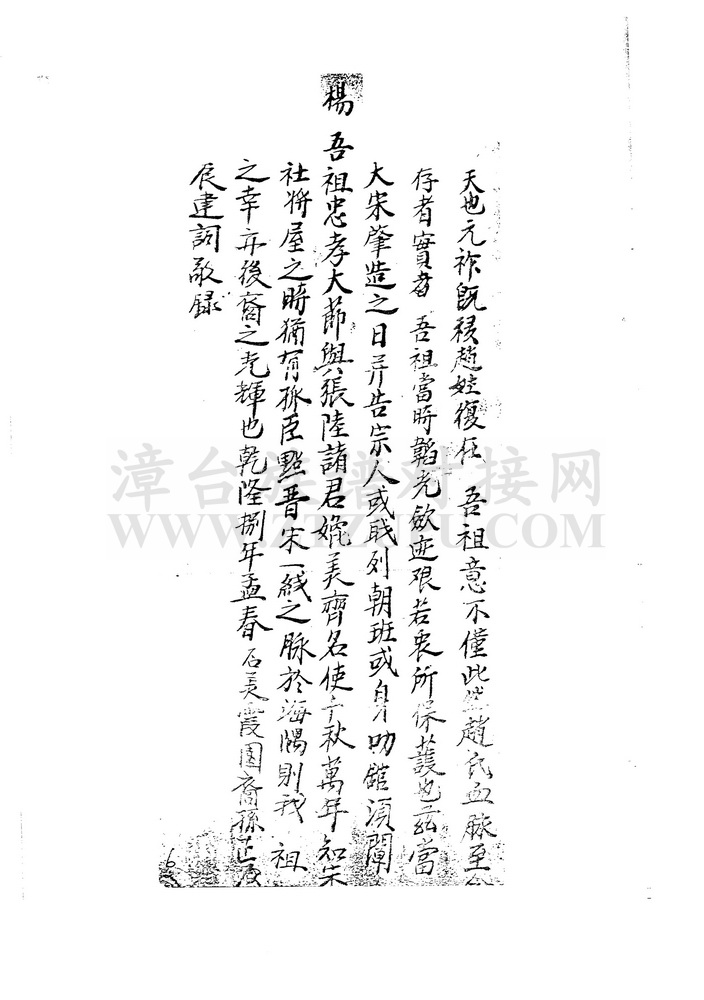 天也元祚既移趙姓復在 吾祖意不僅此然趙氏血脈至今
存者實奇 吾祖當時韜光斂迹艱苦衷所保護也茲當
大宋肇造之日并告宗人或職列朝班或身叨館湏闡
楊 吾祖忠孝大節與張陸諸君媲美齊名使千秋萬年知宋
社將屋之時猶有孤臣點晋宋一綫之脉於海隅則我 祖
之幸亦後裔之光輝也乾隆捌年孟春石美霞園裔孫
展建詞敬録
6
漳台族譜对接网
WWW.ZTZUPU.COM